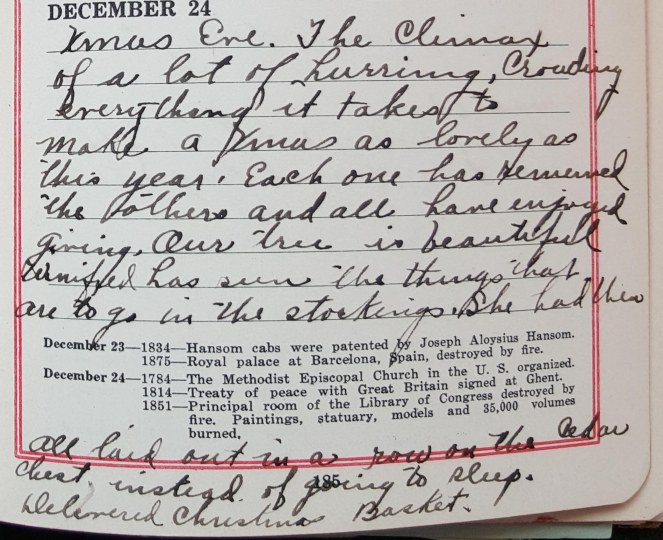 DECEMBER 24
Xmas Eve. The Climax
of a lot of hurring, Crowding
everything it takes to
make a Xmas as lovely as
this year. Each one has remembered
the others and all have enjoyed
giving. Our tree is beautiful
has seen the things that
are to go in the stockings. She had them
December 23—1834—Hansom cabs were patented by Joseph Aloysius Hansom.
1875—Royal palace at Barcelona, Spain, destroyed by fire.
December 24—1784—The Methodist Episcopal Church in the U. S. organized.
1814—Treaty of peace with Great Britain signed at Ghent.
1851—Principal room of the Library of Congress destroyed by
fire. Paintings, statuary, models and 35,000 volumes
burned,
all laid out in a row on the Cedar
185
chest. instead of going to sleep.
Delivered Christmas Basket.